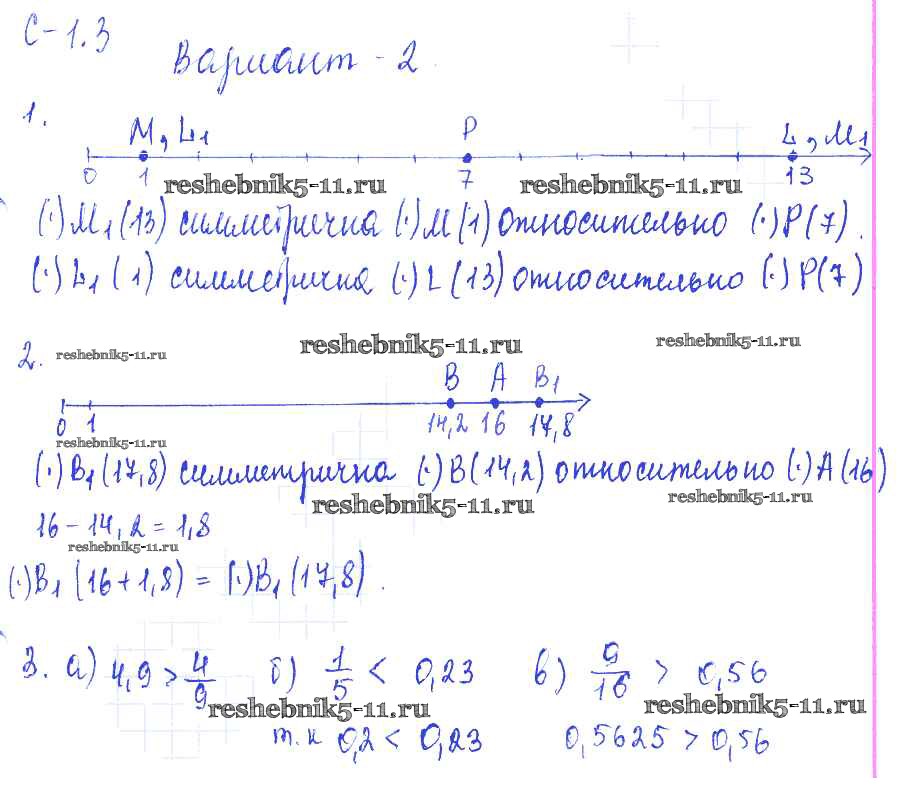 С-1.3
Вариант - 2.
1.
M, L₁ P L, M₁
0 1 7 13
reshebnik5-11.ru reshebnik5-11.ru
(·)M₁(13) симметрична (·)M(1) относительно (·)P(7).
(·)L₁(1) симметрична (·)L(13) относительно (·)P(7)
2. reshebnik5-11.ru reshebnik5-11.ru reshebnik5-11.ru
B A B₁
0 1 14,2 16 17,8
reshebnik5-11.ru
(·)B₁(17,8) симметрична (·)B(14,2) относительно (·)A(16)
reshebnik5-11.ru reshebnik5-11.ru
16 - 14,2 = 1,8
reshebnik5-11.ru
(·)B₁(16+1,8) = (·)B₁(17,8).
3. а) 4,9 > 4/9 б) 1/5 < 0,23 в) 9/16 > 0,56
reshebnik5-11.ru reshebnik5-11.ru
т.к 0,2 < 0,23 0,5625 > 0,56